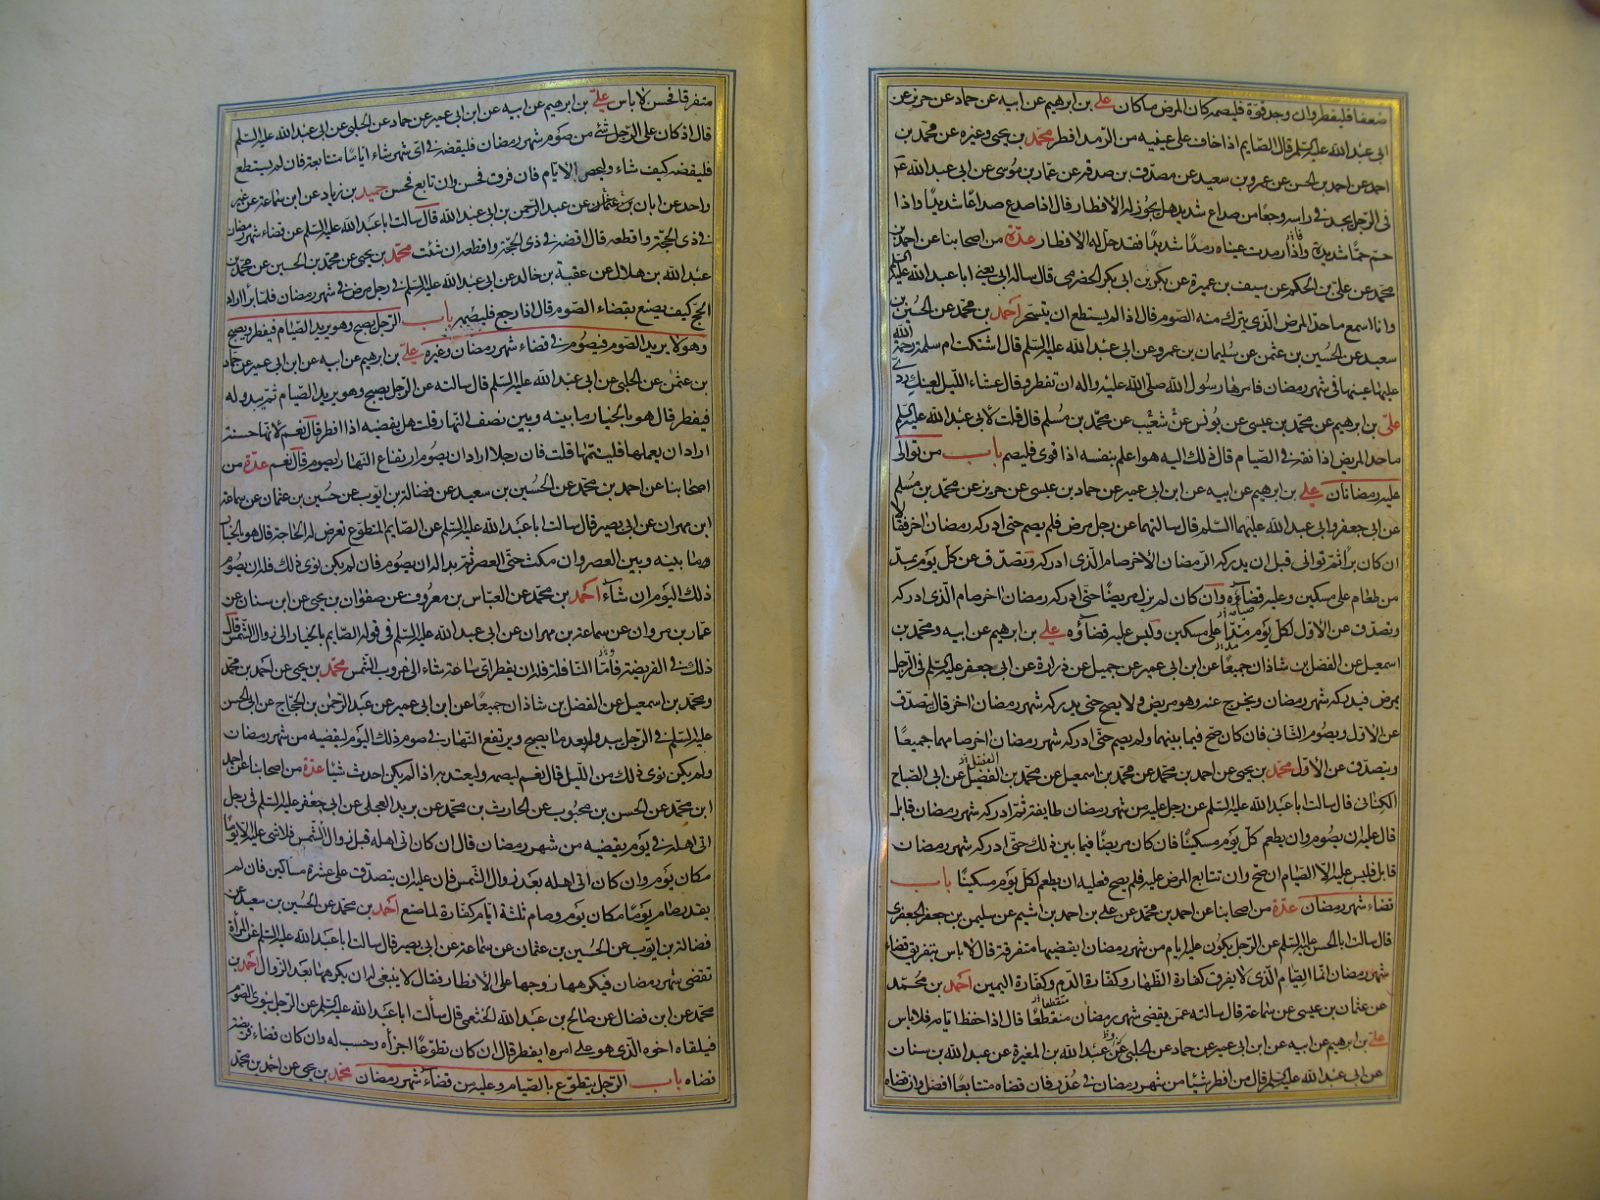 ضعفا فليفطر وان وجد قوة فليصمه كان المرض ما كان علي بن ابرهيم عن ابيه عن حماد عن حريز عن
ابي عبد الله عليه السلم قال الصايم اذا خاف على عينيه من الرمد افطر محمد بن يحيى وغيره عن محمد بن
احمد عن احمد بن الحسن عن عمرو بن سعيد عن مصدق بن صدقه عن عمار بن موسى عن ابي عبد الله ع
في الرجل يجد في راسه وجعا من صداع شديد هل يجوز له الافطار قال اذا صدع صداعا شديدا واذا
حم حما شديدة واذا رمدت عيناه رمدا شديدا فقد حل له الافطار عدة من اصحابنا عن احمد بن
محمد عن علي بن الحكم عن سيف بن عميرة عن بكر بن ابي بكر الحضرمي قال ساله ابي يعني ابا عبد الله عليه السلم
وانا اسمع ما حد المرض الذي يترك منه الصوم قال اذا لم يستطع ان يتسحر احمد بن محمد عن الحسين بن
سعيد عن الحسين بن عثمن عن سليمان بن عمرو عن ابي عبد الله عليه السلم قال اشتكت ام سلمة رحمة الله
عليها عينها في شهر رمضان فامرها رسول الله صلى الله عليه واله ان تفطر وقال عشاء الليل لعينك ردي
علي بن ابرهيم عن محمد بن عيسى عن يونس عن شعيب عن محمد بن مسلم قال قلت لابي عبد الله عليه السلم
ما حد المريض اذا نقه في الصيام قال ذلك اليه هو اعلم بنفسه اذا قوى فليصم باب من توالى
عليه رمضانان علي بن ابرهيم عن ابيه عن ابن ابي عمير عن حماد بن عيسى عن حريز عن محمد بن مسلم
عن ابي جعفر وابي عبد الله عليهما السلم قال سالتهما عن رجل مرض فلم يصم حتى ادركه رمضان اخر فقالا
ان كان برا ثم توانى قبل ان يدركه الرمضان الاخر صام الذي ادركه وتصدق عن كل يوم بمد
من طعام على مسكين وعليه قضاؤه وان كان لم يزل مريضا حتى ادركه رمضان اخر صام الذي ادركه
وتصدق عن الاول لكل يوم مدا على مسكين وليس عليه قضاؤه علي بن ابرهيم عن ابيه ومحمد بن
اسمعيل عن الفضل بن شاذان جميعا عن ابن ابي عمير عن جميل عن زرارة عن ابي جعفر عليه السلم في الرجل
يمرض فيدركه شهر رمضان ويخرج عنه وهو مريض ولا يصح حتى يدركه شهر رمضان اخر قال يتصدق
عن الاول ويصوم الثاني فان كان صح فيما بينهما ولم يصم حتى ادركه شهر رمضان اخر صامهما جميعا
ويتصدق عن الاول محمد بن يحيى عن احمد بن محمد عن محمد بن اسمعيل عن محمد بن الفضيل عن ابي الصباح
الكناني قال سالت ابا عبد الله عليه السلم عن رجل عليه من شهر رمضان طايفة ثم ادركه شهر رمضان قابل
قال عليه ان يصوم وان يطعم كل يوم مسكينا فان كان مريضا فيما بين ذلك حتى ادركه شهر رمضان
قابل فليس عليه الا الصيام ان صح وان تتابع المرض عليه فلم يصح فعليه ان يطعم لكل يوم مسكينا باب
قضاء شهر رمضان عدة من اصحابنا عن احمد بن محمد عن علي بن احمد بن اشيم عن سليمن بن جعفر الجعفري
قال سالت ابا الحسن عليه السلم عن الرجل يكون عليه ايام من شهر رمضان ايقضيها متفرقة قال لا باس بتفريق قضاء
شهر رمضان انما الصيام الذي لا يفرق كفارة الظهار وكفارة الدم وكفارة اليمين احمد بن محمد
عن عثمان بن عيسى عن سماعة قال سالته عمن يقضي شهر رمضان منقطعا قال اذا حفظ ايامه فلا باس
علي بن ابرهيم عن ابيه عن ابن ابي عمير عن حماد عن الحلبي عن عبد الله بن المغيرة عن عبد الله بن سنان
عن ابي عبد الله عليه السلم قال من افطر شيئا من شهر رمضان في عذر فان قضاه متتابعا افضل وان قضاه
متفرقا فحسن لا باس علي بن ابرهيم عن ابيه عن ابن ابي عمير عن حماد عن الحلبي عن ابي عبد الله عليه السلم
قال اذ كان على الرجل شئ من صوم شهر رمضان فليقضه في اي شهر شاء اياما متتابعة فان لم يستطع
فليقضه كيف شاء وليحص الايام فان فرق فحسن وان تابع فحسن حميد بن زياد عن ابن سماعة عن غير
واحد عن ابان بن عثمان عن عبد الرحمن بن ابي عبد الله قال سالت ابا عبد الله عليه السلم عن قضاء شهر رمضان
في ذي الحجة واقطعه قال اقضه في ذي الحجة واقطعه ان شئت محمد بن يحيى عن محمد بن الحسين عن محمد بن
عبد الله بن هلال عن عقبة بن خالد عن ابي عبد الله عليه السلم في رجل مرض في شهر رمضان فلما برا اراد
الحج كيف يصنع بقضاء الصوم قال اذا رجع فليصمه باب الرجل يصبح وهو يريد الصيام فيفطر ويصبح
وهو لا يريد الصوم فيصوم في قضاء شهر رمضان وغيره علي بن ابرهيم عن ابيه عن ابن ابي عمير عن حماد
بن عثمن عن الحلبي عن ابي عبد الله عليه السلم قال سالته عن الرجل يصبح وهو يريد الصيام ثم يبدو له
فيفطر قال هو بالخيار ما بينه وبين نصف النهار قلت هل يقضيه اذا افطر قال نعم لانها حسنة
اراد ان يعملها فليتمها قلت فان رجلا اراد ان يصوم ارتفاع النهار ايصوم قال نعم عدة من
اصحابنا عن احمد بن محمد عن الحسين بن سعيد عن فضالة بن ايوب عن حسين بن عثمان عن سماعة
ابن مهران عن ابي بصير قال سالت ابا عبد الله عليه السلم عن الصايم المتطوع تعرض له الحاجة قال هو بالخيار
وما بينه وبين العصر وان مكث حتى العصر ثم بدا له ان يصوم فان لم يكن نوى ذلك فله ان يصوم
ذلك اليوم ان شاء احمد بن محمد عن العباس بن معروف عن صفوان بن يحيى عن ابن سنان عن
عمار بن مروان عن سماعة بن مهران عن ابي عبد الله عليه السلم في قوله الصايم بالخيار الى زوال الشمس قال
ذلك في الفريضة فاما النافلة فله ان يفطر اي ساعة شاء الى غروب الشمس محمد بن يحيى عن احمد بن محمد
ومحمد بن اسمعيل عن الفضل بن شاذان جميعا عن ابن ابي عمير عن عبد الرحمن بن الحجاج عن ابي الحسن
عليه السلم في الرجل يبدو له بعد ما يصبح ويرتفع النهار في صوم ذلك اليوم ليقضيه من شهر رمضان
ولم يكن نوى ذلك من الليل قال نعم ليصمه وليعتد به اذا لم يكن احدث شيئا عدة من اصحابنا عن احمد
ابن محمد عن الحسن بن محبوب عن الحارث بن محمد عن بريد العجلي عن ابي جعفر عليه السلم في رجل
اتى اهله في يوم يقضيه من شهر رمضان قال ان كان اتى اهله قبل زوال الشمس فلا شئ عليه الا يوما
مكان يوم وان كان اتى اهله بعد زوال الشمس فان عليه ان يتصدق على عشرة مساكين فان لم
يقدر صام يوما مكان يوم وصام ثلثة ايام كفارة لما صنع احمد بن محمد عن الحسين بن سعيد عن
فضالة بن ايوب عن الحسين بن عثمان عن سماعة عن ابي بصير قال سالت ابا عبد الله عليه السلم عن المراة
تقضي شهر رمضان فيكرهها زوجها على الافطار فقال لا ينبغي له ان يكرهها بعد الزوال احمد بن
محمد عن ابن فضال عن صالح بن عبد الله الخثعمي قال سألت ابا عبد الله عليه السلم عن الرجل ينوي الصوم
فيلقاه اخوه الذي هو على امره ايفطر قال ان كان تطوعا اجزأه وحسب له وان كان قضاء فريضة
قضاه باب الرجل يتطوع بالصيام وعليه من قضاء شهر رمضان محمد بن يحيى عن احمد بن محمد